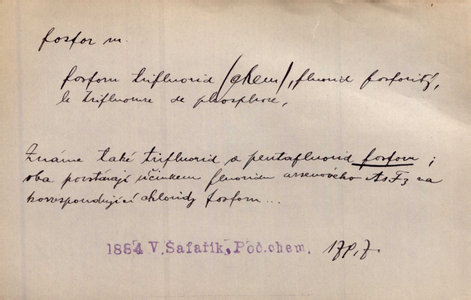 fosfor m.
fosforu trifluorid /chem/, fluorid fosforitý,
le trifluorure de phosphore,
Známe také trifluorid a pentafluorid fosforu;
oba povstávají účinkem fluoridu arsenového AsF3 na
korrespondující chloridy fosforu...
1884 V. Šafařík, Poč.chem.